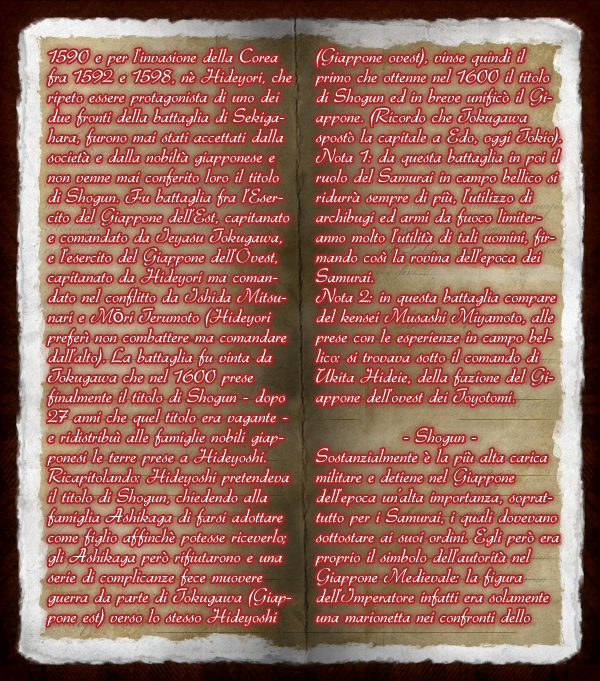 1590 e per l'invasione della Corea
fra 1592 e 1598, nè Hideyori, che
ripeto essere protagonista di uno dei
due fronti della battaglia di Sekiga-
hara, furono mai stati accettati dalla
società e dalla nobiltà giapponese e
non venne mai conferito loro il titolo
di Shogun. Fu battaglia fra l'Eser-
cito del Giappone dell'Est, capitanato
e comandato da Ieyasu Tokugawa,
e l'esercito del Giappone dell'Ovest,
capitanato da Hideyori ma coman-
dato nel conflitto da Ishida Mitsu-
nari e Mōri Terumoto (Hideyori
preferì non combattere ma comandare
dall'alto). La battaglia fu vinta da
Tokugawa che nel 1600 prese
finalmente il titolo di Shogun - dopo
27 anni che quel titolo era vagante -
e ridistribuì alle famiglie nobili giap-
ponesi le terre prese a Hideyoshi.
Ricapitolando: Hideyoshi pretendeva
il titolo di Shogun, chiedendo alla
famiglia Ashikaga di farsi adottare
come figlio affinchè potesse riceverlo;
gli Ashikaga però rifiutarono e una
serie di complicanze fece muovere
guerra da parte di Tokugawa (Giap-
pone est) verso lo stesso Hideyoshi
(Giappone ovest), vinse quindi il
primo che ottenne nel 1600 il titolo
di Shogun ed in breve unificò il Gi-
appone. (Ricordo che Tokugawa
spostò la capitale a Edo, oggi Tokio).
Nota 1: da questa battaglia in poi il
ruolo del Samurai in campo bellico si
ridurrà sempre di più, l'utilizzo di
archibugi ed armi da fuoco limiter-
anno molto l'utilità di tali uomini, fir-
mando così la rovina dell'epoca dei
Samurai.
Nota 2: in questa battaglia compare
del kensei Musashi Miyamoto, alle
prese con le esperienze in campo bel-
lico: si trovava sotto il comando di
Ukita Hideie, della fazione del Gi-
appone dell'ovest dei Toyotomi.
- Shogun -
Sostanzialmente è la più alta carica
militare e detiene nel Giappone
dell'epoca un'alta importanza, soprat-
tutto per i Samurai, i quali dovevano
sottostare ai suoi ordini. Egli però era
proprio il simbolo dell'autorità nel
Giappone Medievale: la figura
dell'Imperatore infatti era solamente
una marionetta nei confronti dello